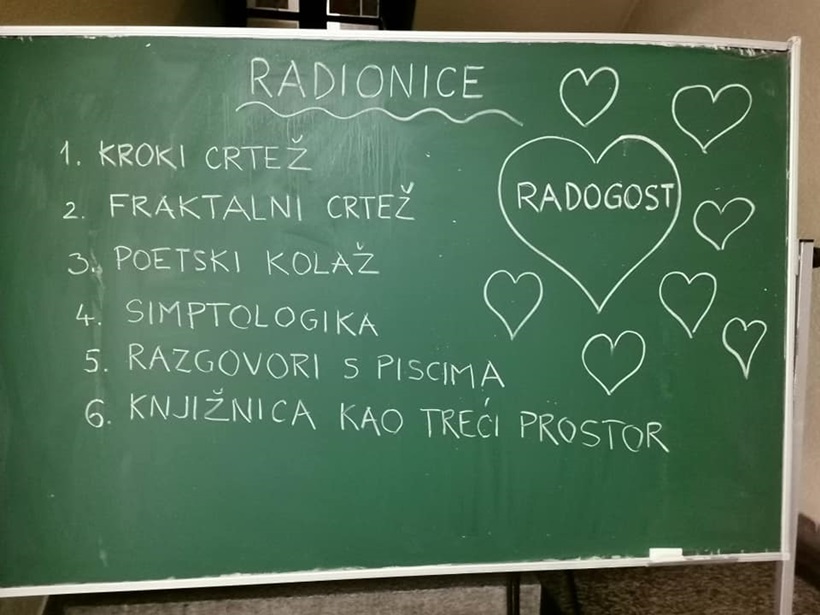 RADIONICE
1. KROKI CRTEŽ
2. FRAKTALNI CRTEŽ
3. POETSKI KOLAŽ
4. SIMPTOLOGIKA
5. RAZGOVORI S PISCIMA
6. KNJIŽNICA KAO TREĆI PROSTOR
RADOGOST